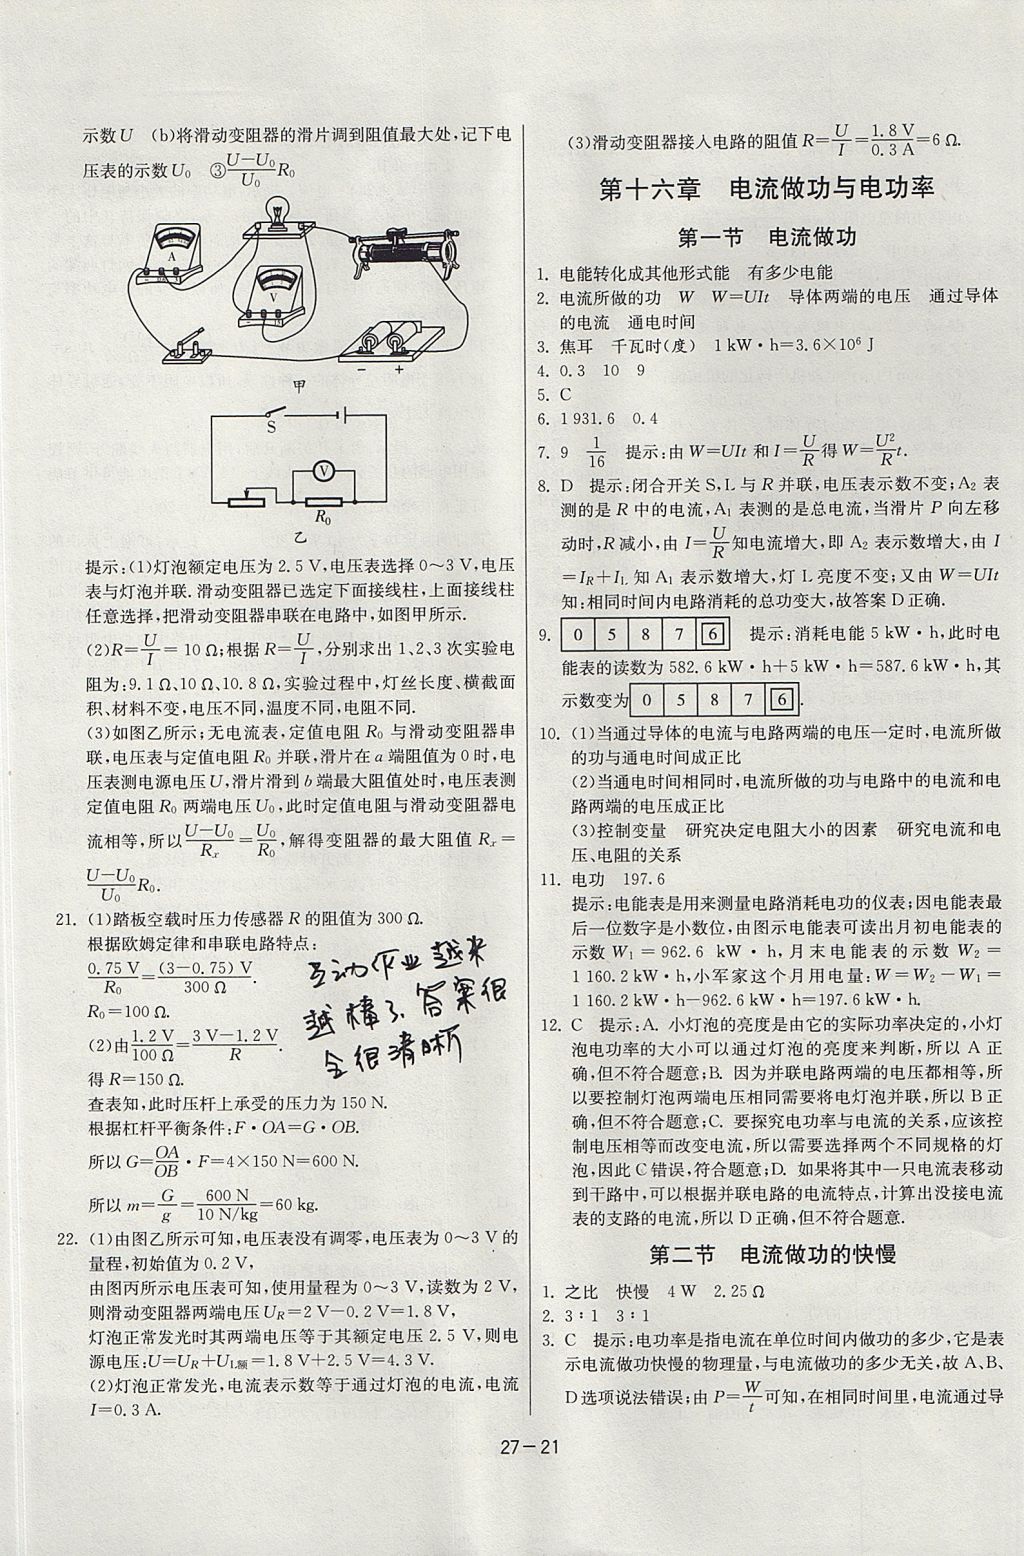 示数U (b)将滑动变阻器的滑片调到阻值最大处,记下电
压表的示数U₀ ③(U−U₀)/U₀ R₀
A
V
− +
甲
S
V
R₀
乙
提示:(1)灯泡额定电压为2.5 V,电压表选择0~3 V,电压
表与灯泡并联.滑动变阻器已选定下面接线柱,上面接线柱
任意选择,把滑动变阻器串联在电路中,如图甲所示.
(2)R=U/I=10 Ω;根据R=U/I,分别求出1、2、3次实验电
阻为:9.1 Ω、10 Ω、10.8 Ω,实验过程中,灯丝长度、横截面
积、材料不变,电压不同,温度不同,电阻不同.
(3)如图乙所示;无电流表,定值电阻R₀与滑动变阻器串
联,电压表与定值电阻R₀并联,滑片在a端阻值为0时,电
压表测电源电压U,滑片滑到b端最大阻值处时,电压表测
定值电阻R₀两端电压U₀,此时定值电阻与滑动变阻器电
流相等,所以(U−U₀)/Rₓ=U₀/R₀,解得变阻器的最大阻值Rₓ=
(U−U₀)/U₀ R₀.
21. (1)踏板空载时压力传感器R的阻值为300 Ω.
根据欧姆定律和串联电路特点:
0.75 V/R₀=(3−0.75) V/300 Ω.
R₀=100 Ω.
(2)由1.2 V/100 Ω=(3 V−1.2 V)/R.
得R=150 Ω.
查表知,此时压杆上承受的压力为150 N.
根据杠杆平衡条件:F·OA=G·OB.
所以G=OA/OB·F=4×150 N=600 N.
所以m=G/g=600 N/10 N/kg=60 kg.
互动作业越来
越棒了,答案很
全很清晰
22. (1)由图乙所示可知,电压表没有调零,电压表为0~3 V的
量程,初始值为0.2 V,
由图丙所示电压表可知,使用量程为0~3 V,读数为2 V,
则滑动变阻器两端电压U_R=2 V−0.2 V=1.8 V,
灯泡正常发光时其两端电压等于其额定电压2.5 V,则电
源电压:U=U_R+U_L额=1.8 V+2.5 V=4.3 V.
(2)灯泡正常发光,电流表示数等于通过灯泡的电流,电流
I=0.3 A.
(3)滑动变阻器接入电路的阻值R=U/I=1.8 V/0.3 A=6 Ω.
第十六章 电流做功与电功率
第一节 电流做功
1. 电能转化成其他形式能 有多少电能
2. 电流所做的功 W W=UIt 导体两端的电压 通过导体
的电流 通电时间
3. 焦耳 千瓦时(度) 1 kW·h=3.6×10⁶ J
4. 0.3 10 9
5. C
6. 1 931.6 0.4
7. 9 1/16 提示:由W=UIt和I=U/R得W=U²/R t.
8. D 提示:闭合开关S,L与R并联,电压表示数不变;A₂表
测的是R中的电流,A₁表测的是总电流,当滑片P向左移
动时,R减小,由I=U/R知电流增大,即A₂表示数增大,由I
=I_R+I_L知A₁表示数增大,灯L亮度不变;又由W=UIt
知:相同时间内电路消耗的总功变大,故答案D正确.
9. 0 5 8 7 6 提示:消耗电能5 kW·h,此时电
能表的读数为582.6 kW·h+5 kW·h=587.6 kW·h,其
示数变为 0 5 8 7 6.
10. (1)当通过导体的电流与电路两端的电压一定时,电流所做
的功与通电时间成正比
(2)当通电时间相同时,电流所做的功与电路中的电流和电
路两端的电压成正比
(3)控制变量 研究决定电阻大小的因素 研究电流和电
压、电阻的关系
11. 电功 197.6
提示:电能表是用来测量电路消耗电功的仪表;因电能表最
后一位数字是小数位,由图示电能表可读出月初电能表的
示数W₁=962.6 kW·h,月末电能表的示数W₂=
1 160.2 kW·h,小军家这个月用电量:W=W₂−W₁=
1 160.2 kW·h−962.6 kW·h=197.6 kW·h.
12. C 提示:A. 小灯泡的亮度是由它的实际功率决定的,小灯
泡电功率的大小可以通过灯泡的亮度来判断,所以A正
确,但不符合题意;B. 因为并联电路两端的电压都相等,所
以要控制灯泡两端电压相同需要将电灯泡并联,所以B正
确,但不符合题意;C. 要探究电功率与电流的关系,应该控
制电压相等而改变电流,所以需要选择两个不同规格的灯
泡,因此C错误,符合题意;D. 如果将其中一只电流表移动
到干路中,可以根据并联电路的电流特点,计算出没接电流
表的支路的电流,所以D正确,但不符合题意.
第二节 电流做功的快慢
1. 之比 快慢 4 W 2.25 Ω
2. 3∶1 3∶1
3. C 提示:电功率是指电流在单位时间内做功的多少,它是表
示电流做功快慢的物理量,与电流做功的多少无关,故A、B、
D选项说法错误;由P=W/t可知,在相同时间里,电流通过导
27−21